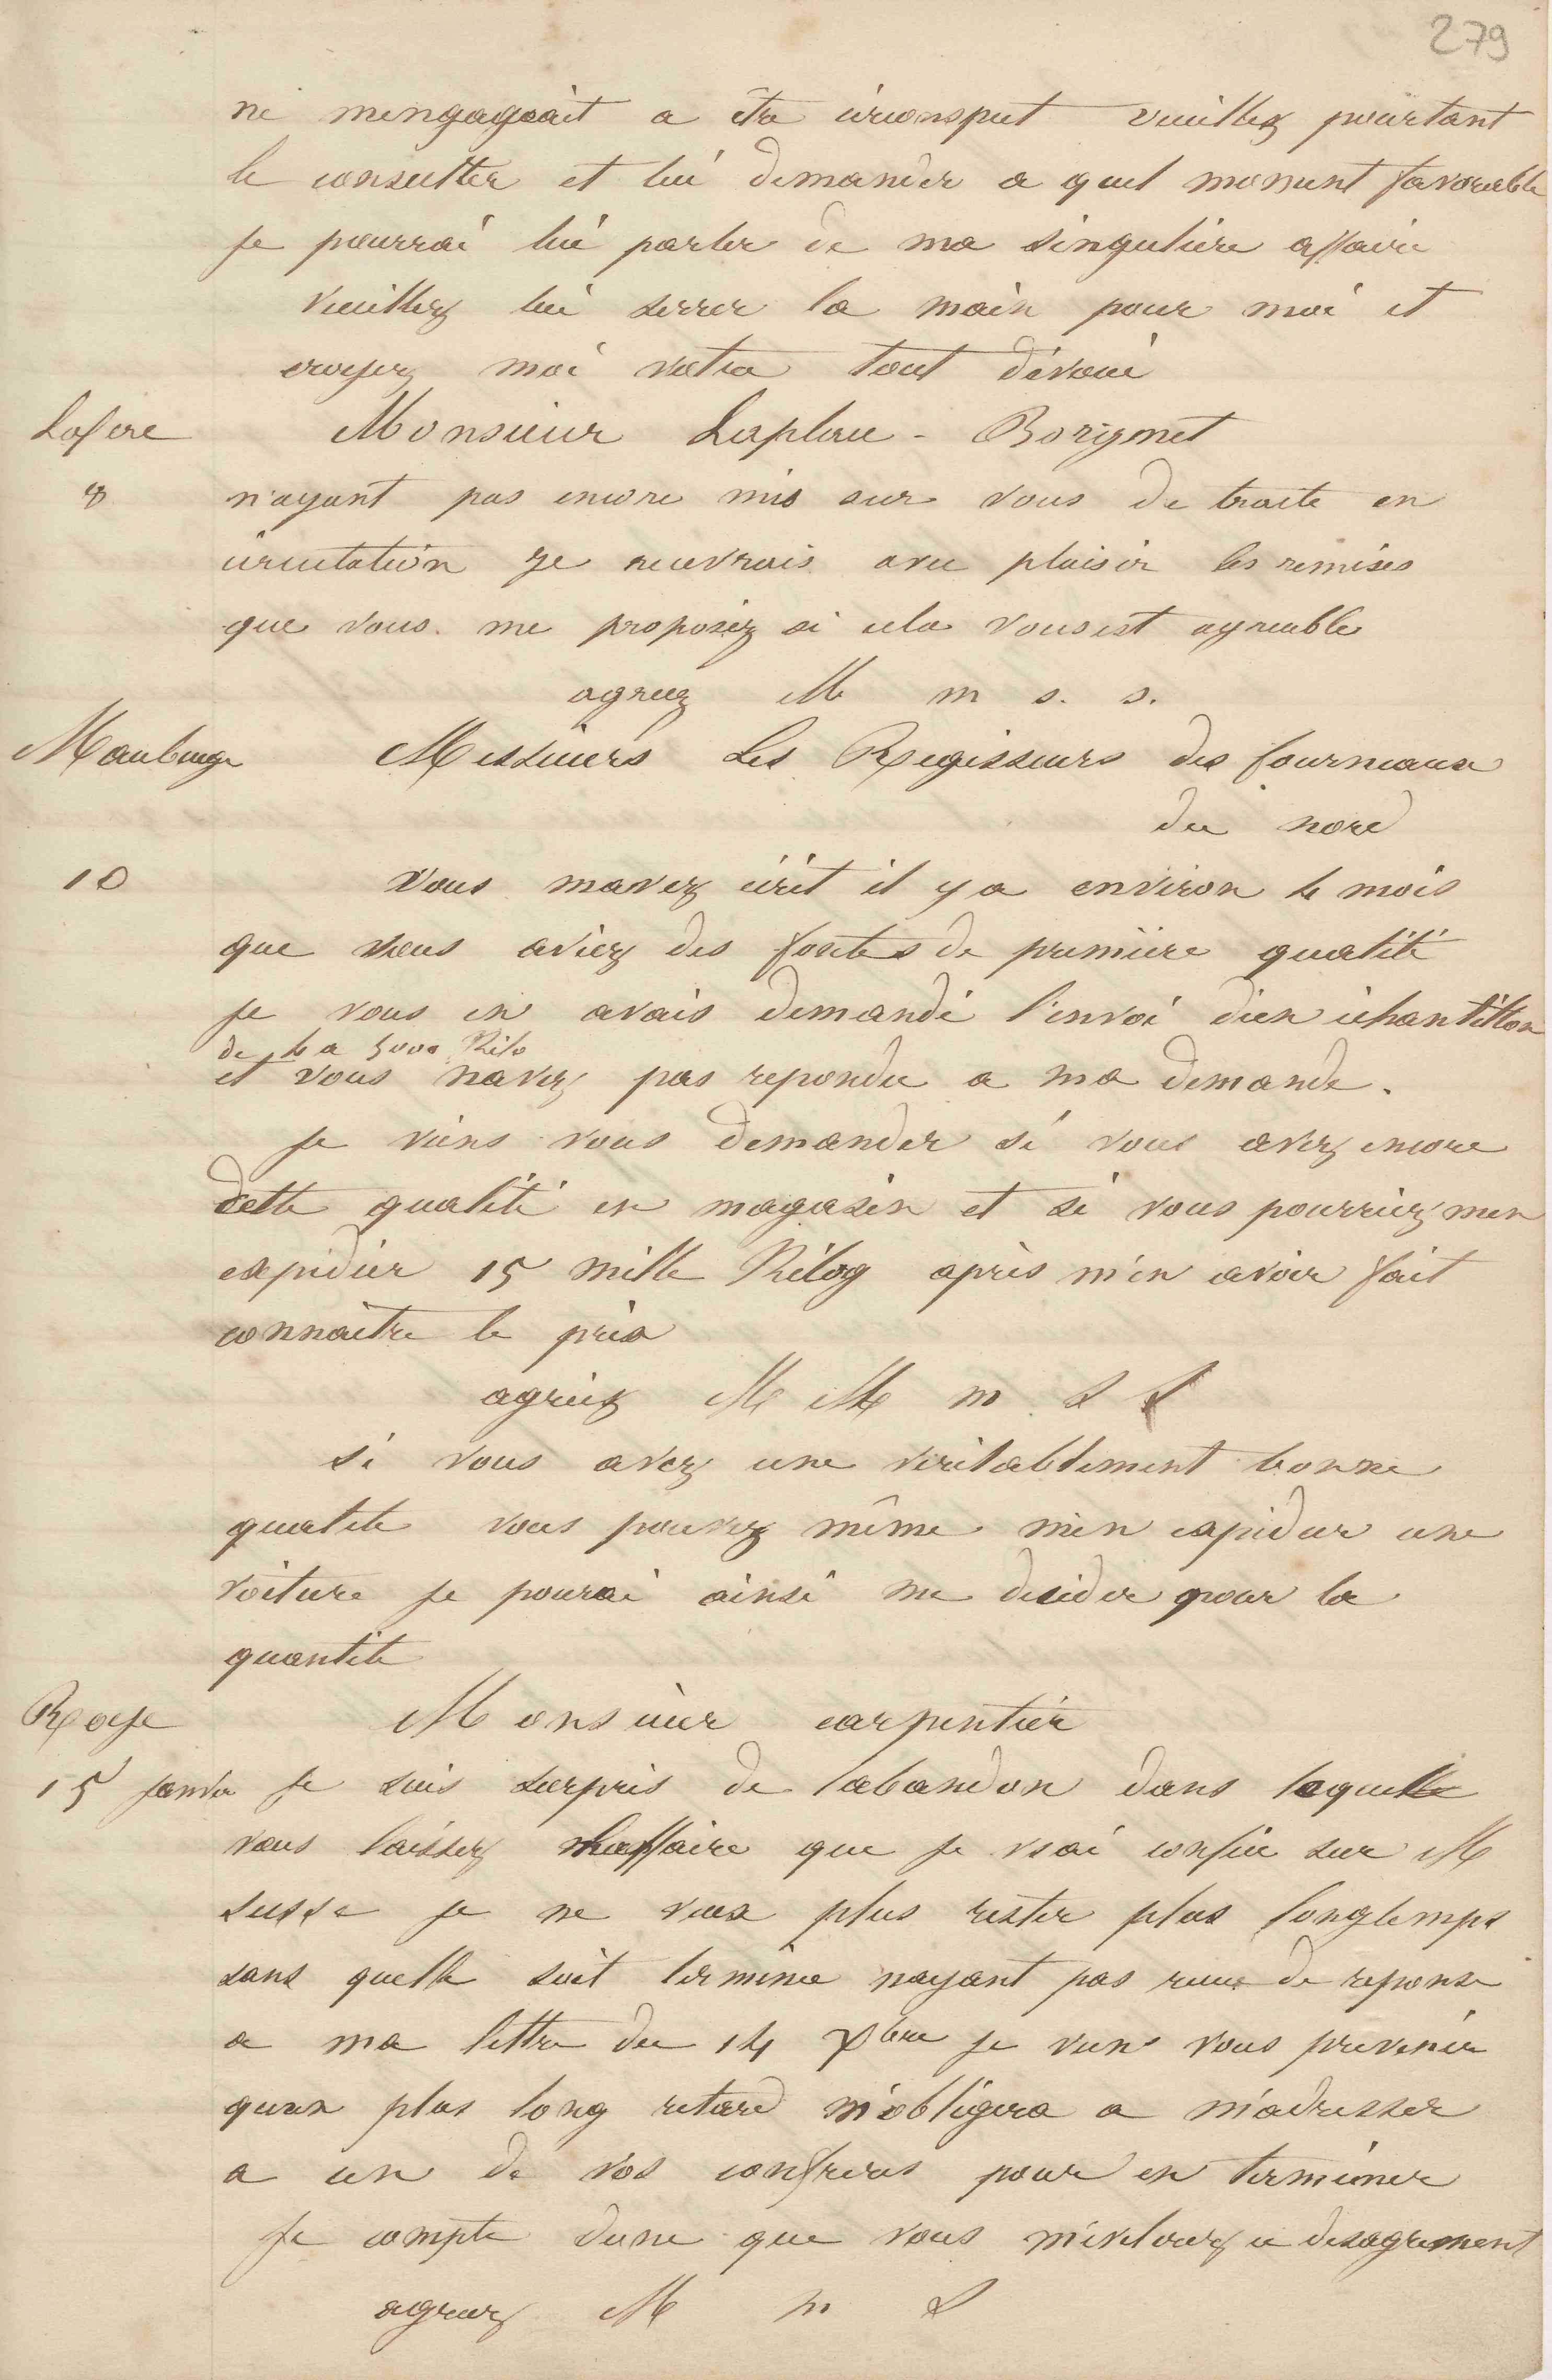 279
ne mengageait a être circonspect veuillez pourtant
le consulter et lui demander a quel moment favorable
je pourrai lui parler de ma singulière affaire
veuillez lui serrer la main pour moi et
croyez moi votre tout dévoué
Lafere Monsieur Laplace - Borignet
8 n'ayant pas encore mis sur vous de traite en
circulation je recevrais avec plaisir les remises
que vous me proposez si cela vous est agreable
agreez M m s. s.
Maubeuge Messieurs Les Regisseurs des fourneaux
du nord
10 Vous mavez écrit il y a environ 4 mois
que vous aviez des fontes de première qualité
je vous en avais demandé l'envoi d'un échantillon
de 4 a 5000 Kilo
et vous navez pas repondu a ma demande.
je viens vous demander si vous avez encore
cette qualité en magasin et si vous pourriez men
expédier 15 mille Kilog après m'en avoir fait
connaitre le prix
agréez M M m S S
si vous avez une veritablement bonne
qualite vous pouvez même m'en expedier une
voiture je pourai ainsi me decider pour la
quantite
Roye Monsieur carpentier
15 janvier je suis surpris de labandon dans laquelle
vous laissez laffaire que je vs ai confiée sur M
susse je ne veux plus rester plus longtemps
sans quelle soit terminée nayant pas recue de reponse
a ma lettre du 14 Xbre je viens vous prevenir
quun plus long retard m'obligera a m'adresser
a un de vos confreres pour en terminer
Je compte donc que vous m'eviterez ce desagrement
agreez M m S